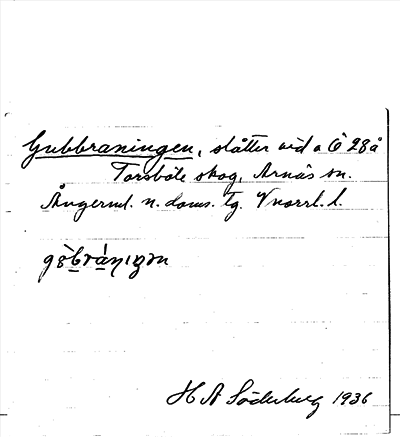 Gubbraningen, slåtter vid a Ö 28å
Torsböle skog, Arnäs sn.
Ångerml. n. doms. tg. Vnorrl. l.
H A Söderberg 1936